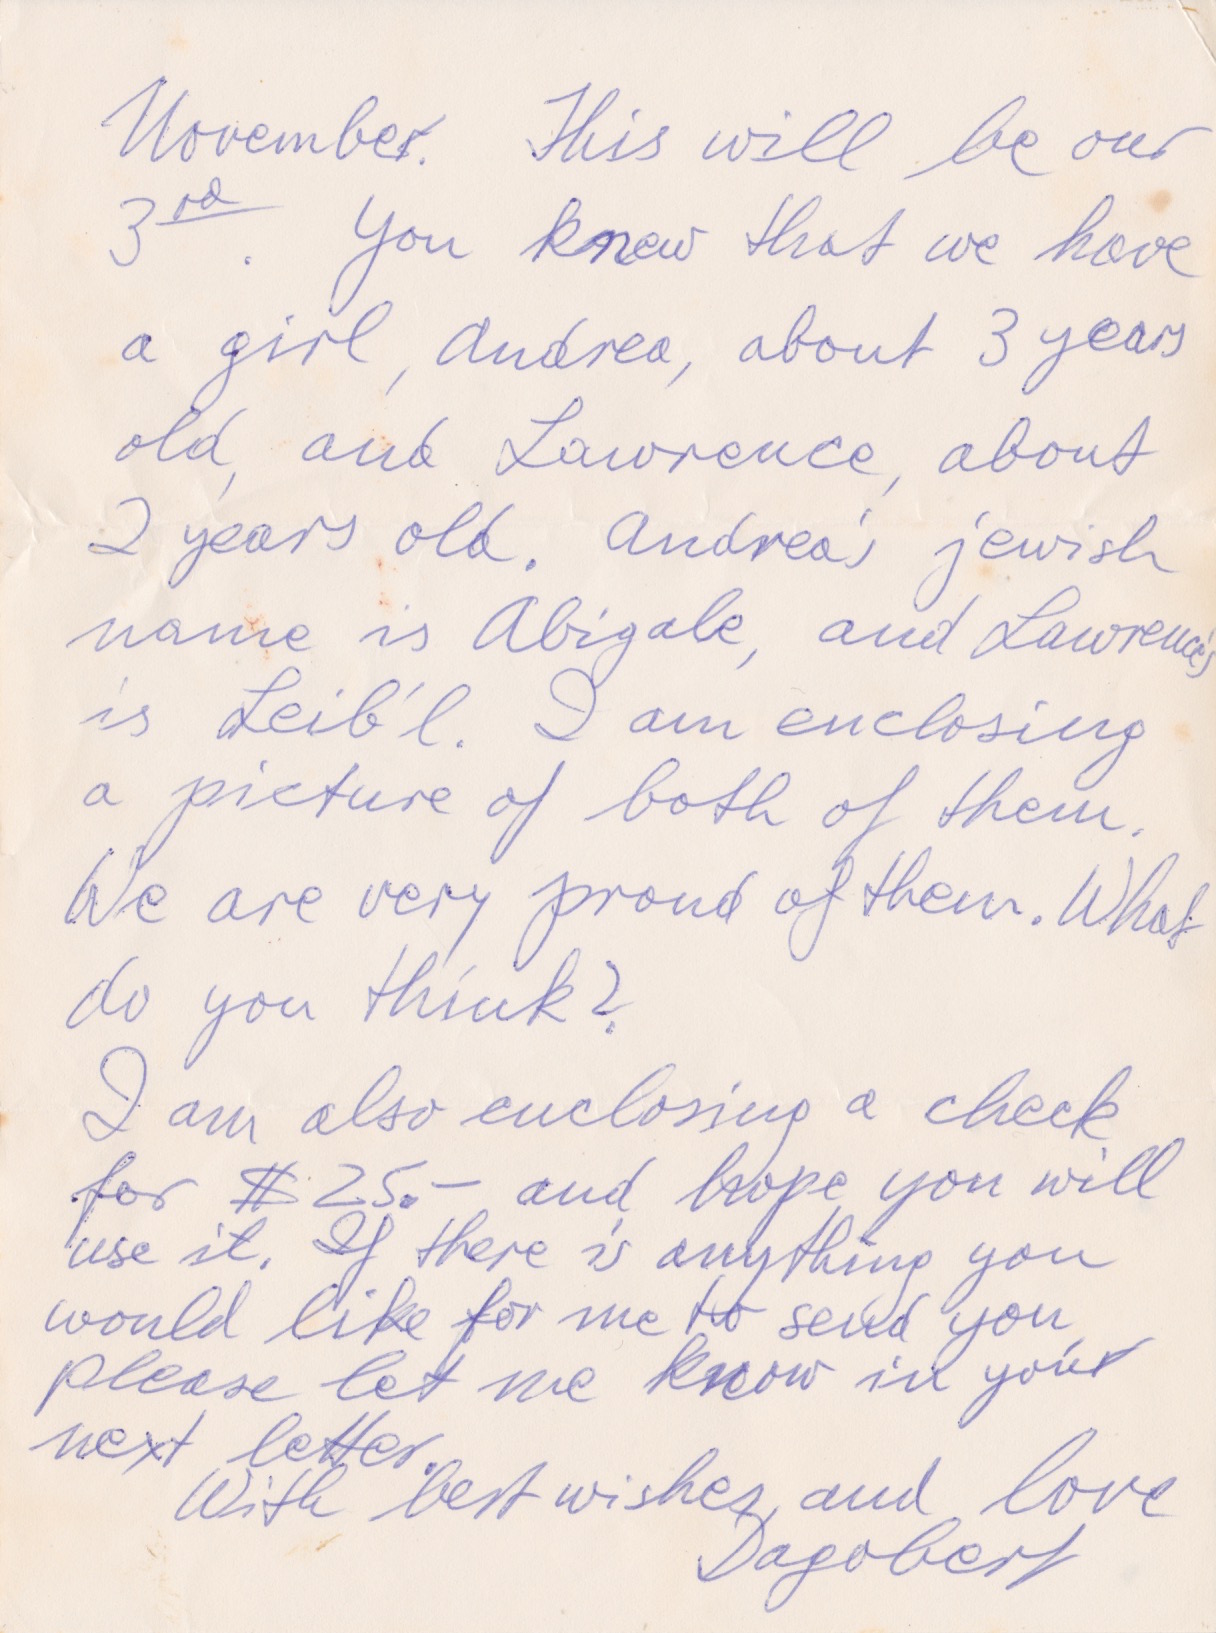 November. This will be our
3rd. You knew that we have
a girl, Andrea, about 3 years
old, and Lawrence, about
2 years old. Andrea's jewish
name is Abigale, and Lawrence's
is Leib'l. I am enclosing
a picture of both of them.
We are very proud of them. What
do you think?
I am also enclosing a check
for $25.- and hope you will
use it. If there is anything you
would like for me to send you
please let me know in your
next letter.
With best wishes, and love
Dagobert